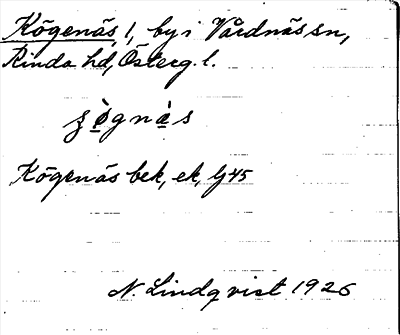 Kögenäs 1, by i Vårdnäs sn,
Kinda hd, Österg. l.
ʒø̀gnàs
Kögenäs bek, ek, G45
N. Lindqvist 1926